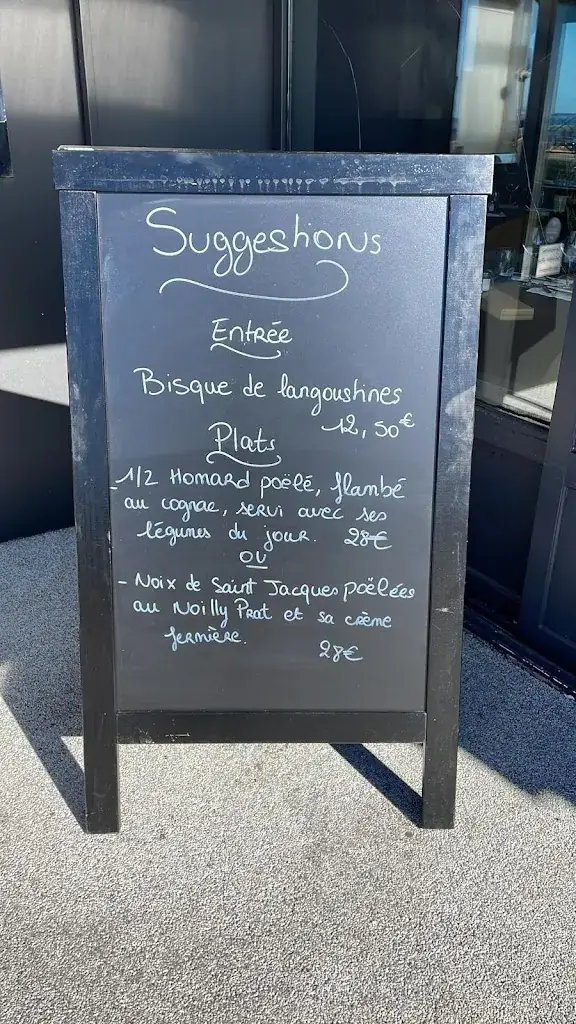 Suggestions
Entrée
Bisque de langoustines
12,50€
Plats
-1/2 Homard poëlé, flambé
au cognac, servi avec ses
légumes du jour. 28€
OU
- Noix de Saint Jacques poëlées
au Noilly Prat et sa crème
fermière.
28€